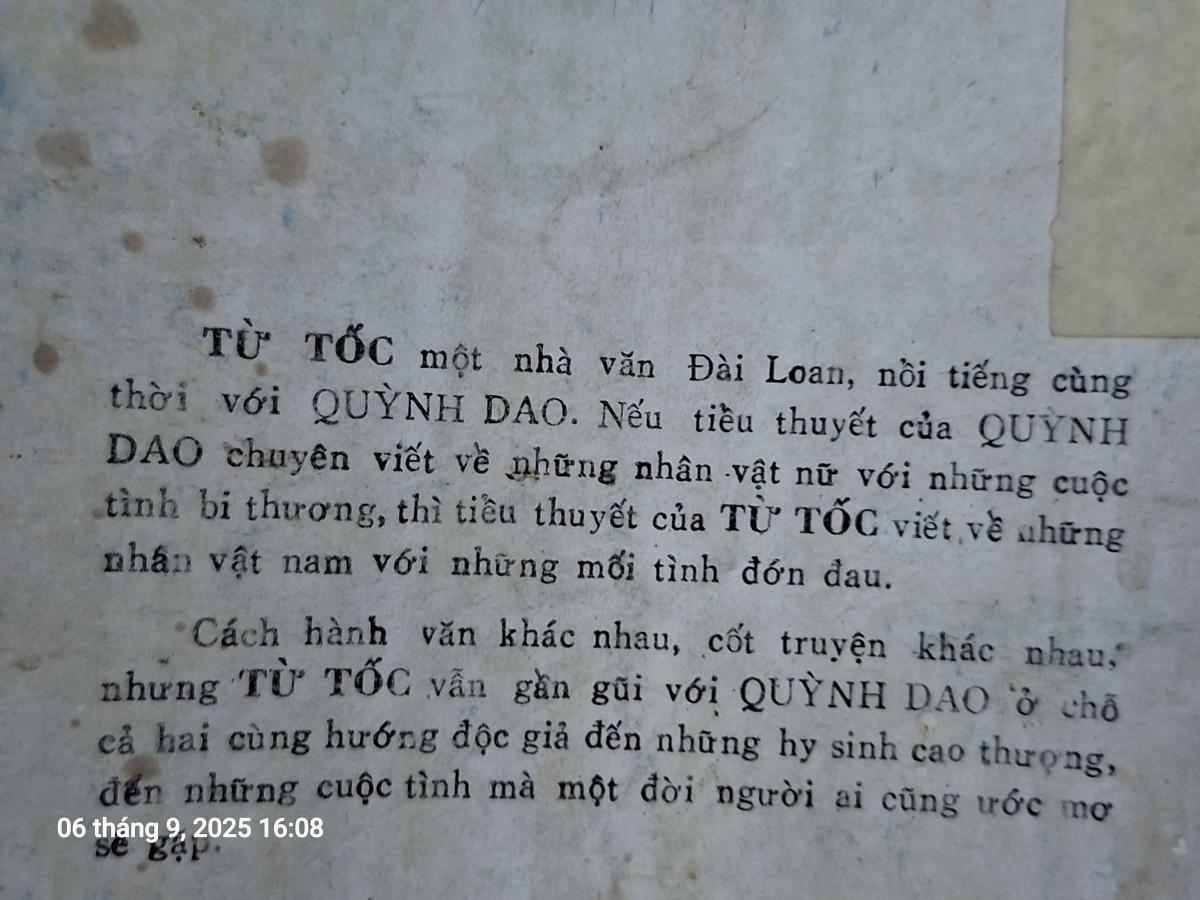 TỪ TỐC một nhà văn Đài Loan, nổi tiếng cùng
thời với QUỲNH DAO. Nếu tiểu thuyết của QUỲNH
DAO chuyên viết về những nhân vật nữ với những cuộc
tình bi thương, thì tiểu thuyết của TỪ TỐC viết về những
nhân vật nam với những mối tình đớn đau.
Cách hành văn khác nhau, cốt truyện khác nhau,
nhưng TỪ TỐC vẫn gần gũi với QUỲNH DAO ở chỗ
cả hai cùng hướng độc giả đến những hy sinh cao thượng,
đến những cuộc tình mà một đời người ai cũng ước mơ
sẽ gặp.
06 tháng 9, 2025 16:08